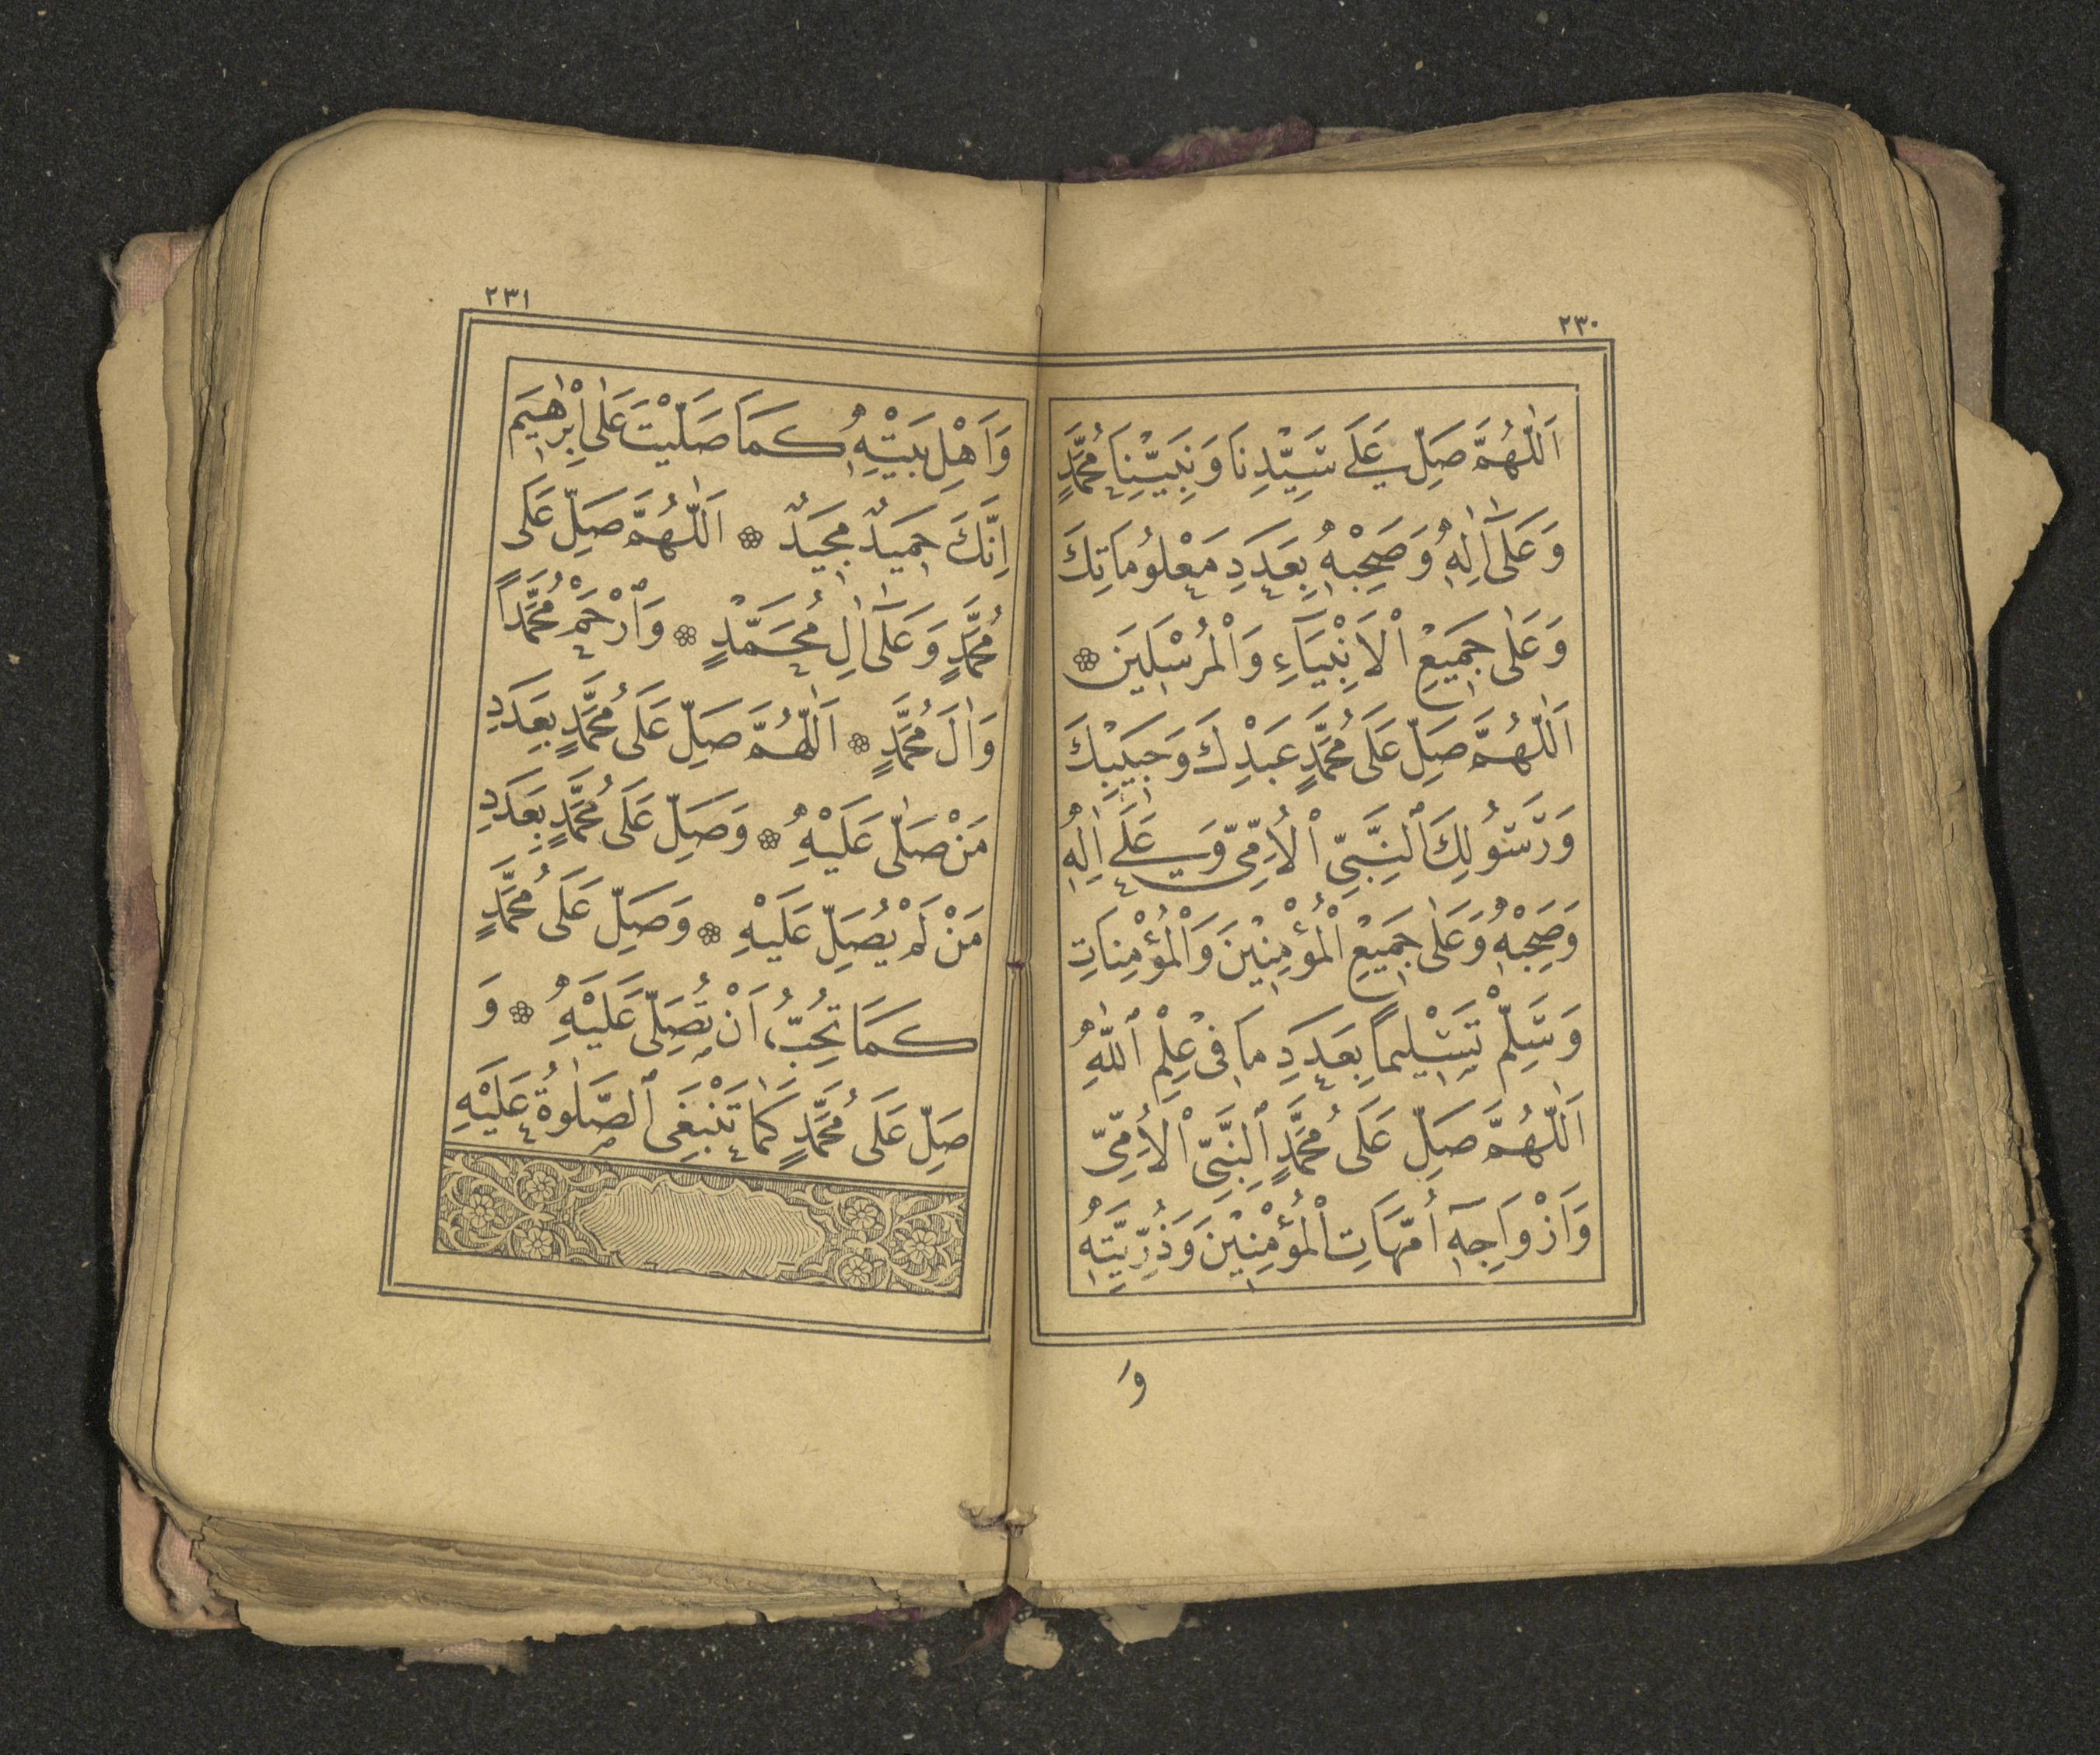 ٢٣٠
اَللّٰهُمَّ صَلِّ عَلَى سَيِّدِنَا وَنَبِيِّنَا مُحَمَّدٍ
وَعَلٰٓى اٰلِهٖ وَصَحْبِهٖ بِعَدَدِ مَعْلُومَاتِكَ
وَعَلٰى جَمِيعِ الْاَنْبِيَآءِ وَالْمُرْسَلِينَ ۞
اَللّٰهُمَّ صَلِّ عَلَى مُحَمَّدٍ عَبْدِكَ وَحَبِيبِكَ
وَرَسُولِكَ النَّبِيِّ الْاُمِّيِّ وَعَلَى اٰلِهٖ
وَصَحْبِهٖ وَعَلٰى جَمِيعِ الْمُؤْمِنِينَ وَالْمُؤْمِنَاتِ
وَسَلِّمْ تَسْلِيمًا بِعَدَدِ مَا فِى عِلْمِ اللّٰهِ
اَللّٰهُمَّ صَلِّ عَلَى مُحَمَّدٍ النَّبِيِّ الْاُمِّيِّ
وَاَزْوَاجِهٖٓ اُمَّهَاتِ الْمُؤْمِنِينَ وَذُرِّيَّتِهٖ
وَ
٢٣١
وَاَهْلِ بَيْتِهٖ كَمَا صَلَّيْتَ عَلٰى اِبْرٰهِيمَ
اِنَّكَ حَمِيدٌ مَجِيدٌ ۞ اَللّٰهُمَّ صَلِّ عَلَى
مُحَمَّدٍ وَعَلٰٓى اٰلِ مُحَمَّدٍ ۞ وَارْحَمْ مُحَمَّدًا
وَاٰلَ مُحَمَّدٍ ۞ اَللّٰهُمَّ صَلِّ عَلَى مُحَمَّدٍ بِعَدَدِ
مَنْ صَلّٰى عَلَيْهِ ۞ وَصَلِّ عَلَى مُحَمَّدٍ بِعَدَدِ
مَنْ لَمْ يُصَلِّ عَلَيْهِ ۞ وَصَلِّ عَلَى مُحَمَّدٍ
كَمَا تُحِبُّ اَنْ تُصَلِّىَ عَلَيْهِ ۞ وَ
صَلِّ عَلَى مُحَمَّدٍ كَمَا تَنْبَغِى الصَّلٰوةُ عَلَيْهِ